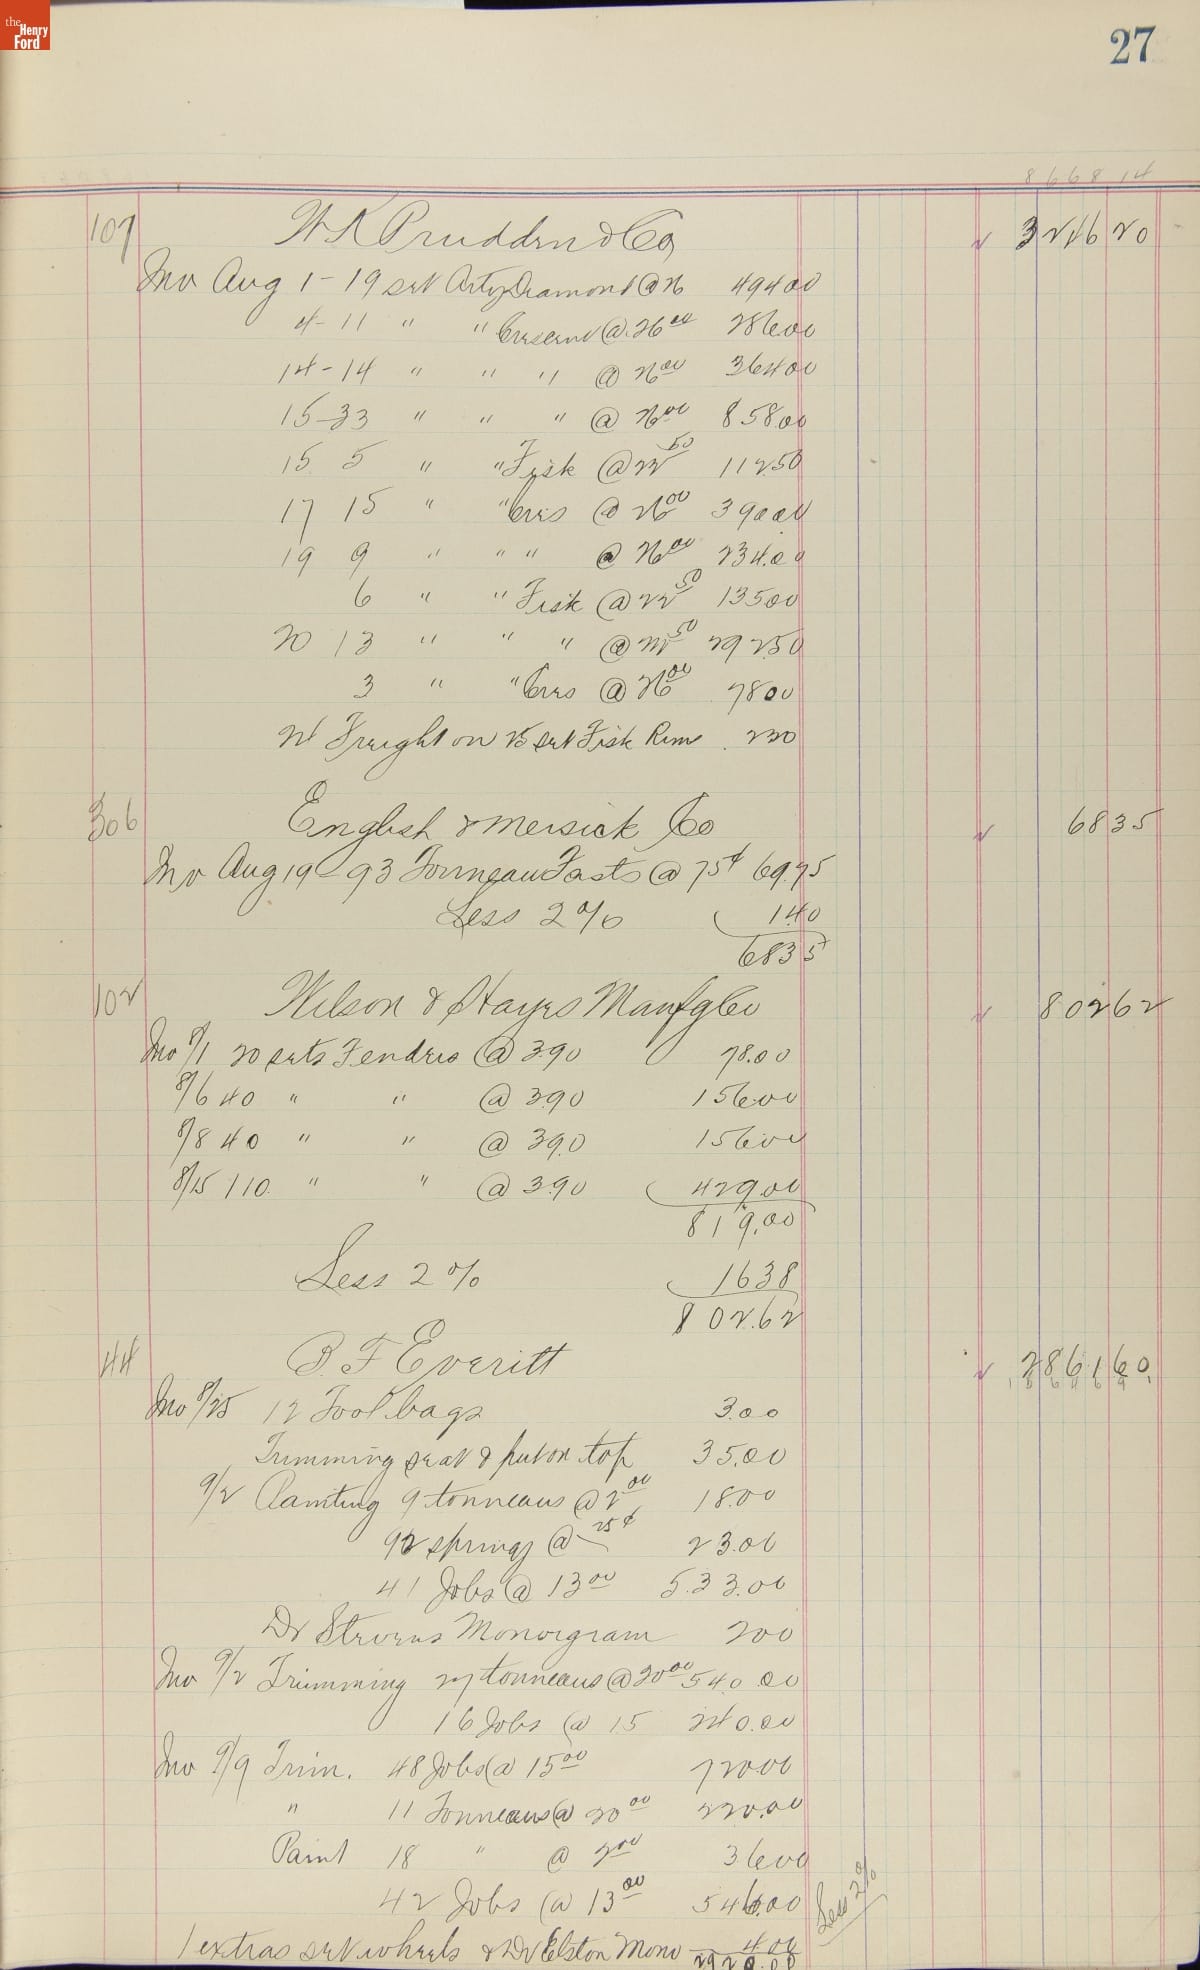 the Henry Ford
27
8668 14
107 W K Prudden & Co 3246 20
Inv Aug 1 - 19 set Arty Diamond @ 26 494 00
4 - 11 " " Crescent @ 26 00 286.00
14 - 14 " " " @ 26 00 364 00
15 - 33 " " " @ 26 00 858.00
15 5 " " Fisk @ 22 50 112.50
17 15 " " Cres @ 26 00 390.00
19 9 " " " @ 26 00 234.00
6 " " Fisk @ 22 50 135 00
20 13 " " " @ 22 50 292 50
3 " " Cres @ 26 00 78 00
Freight on 25 set Fisk Rims 2 30
306 English & Mersick Co 68 35
Inv Aug 19 - 93 Tonneau Fasts @ 75¢ 69.75
Less 2% 1.40
68 35
102 Wilson & Hayes Manfg Co 802 62
Inv 8/1 20 sets Fenders @ 3.90 78.00
8/6 40 " " @ 3.90 156.00
8/8 40 " " @ 3.90 156.00
8/15 110 " " @ 3.90 429.00
819.00
Less 2% 16 38
802.62
44 B. F. Everitt 2861 60
Inv 8/25 12 Tool bags 3.00
Trimming seat & put on top 35.00
9/2 Painting 9 tonneaus @ 2 00 18.00
92 springs @ 25¢ 23.00
41 Jobs @ 13 00 533.00
Dr Stevens Monogram 2 00
Inv 9/2 Trimming 27 tonneaus @ 20 00 540.00
16 Jobs @ 15 240.00
Inv 9/9 Trim. 48 Jobs @ 15 00 720 00
" 11 Tonneaus @ 20 00 220.00
Paint 18 " @ 2 00 36 00
42 Jobs @ 13 00 546.00
Less 2%
1 extras set wheels & Dr Elston Mono 4.00
2920.00